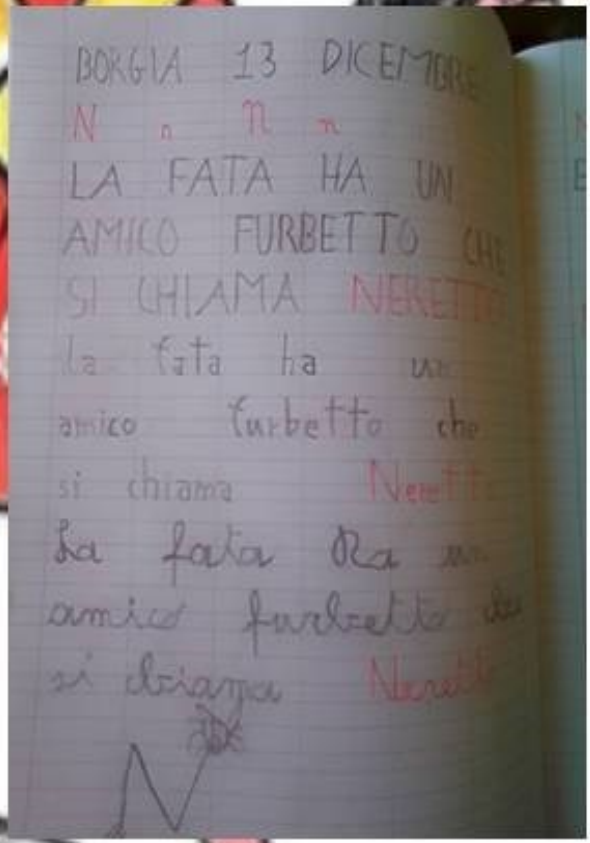 BORGIA 13 DICEMBRE
N n N n
LA FATA HA UN
AMICO FURBETTO CHE
SI CHIAMA NERETTO
la fata ha un
amico furbetto che
si chiama Neretto
La fata ha un
amico furbetto che
si chiama Neretto
N